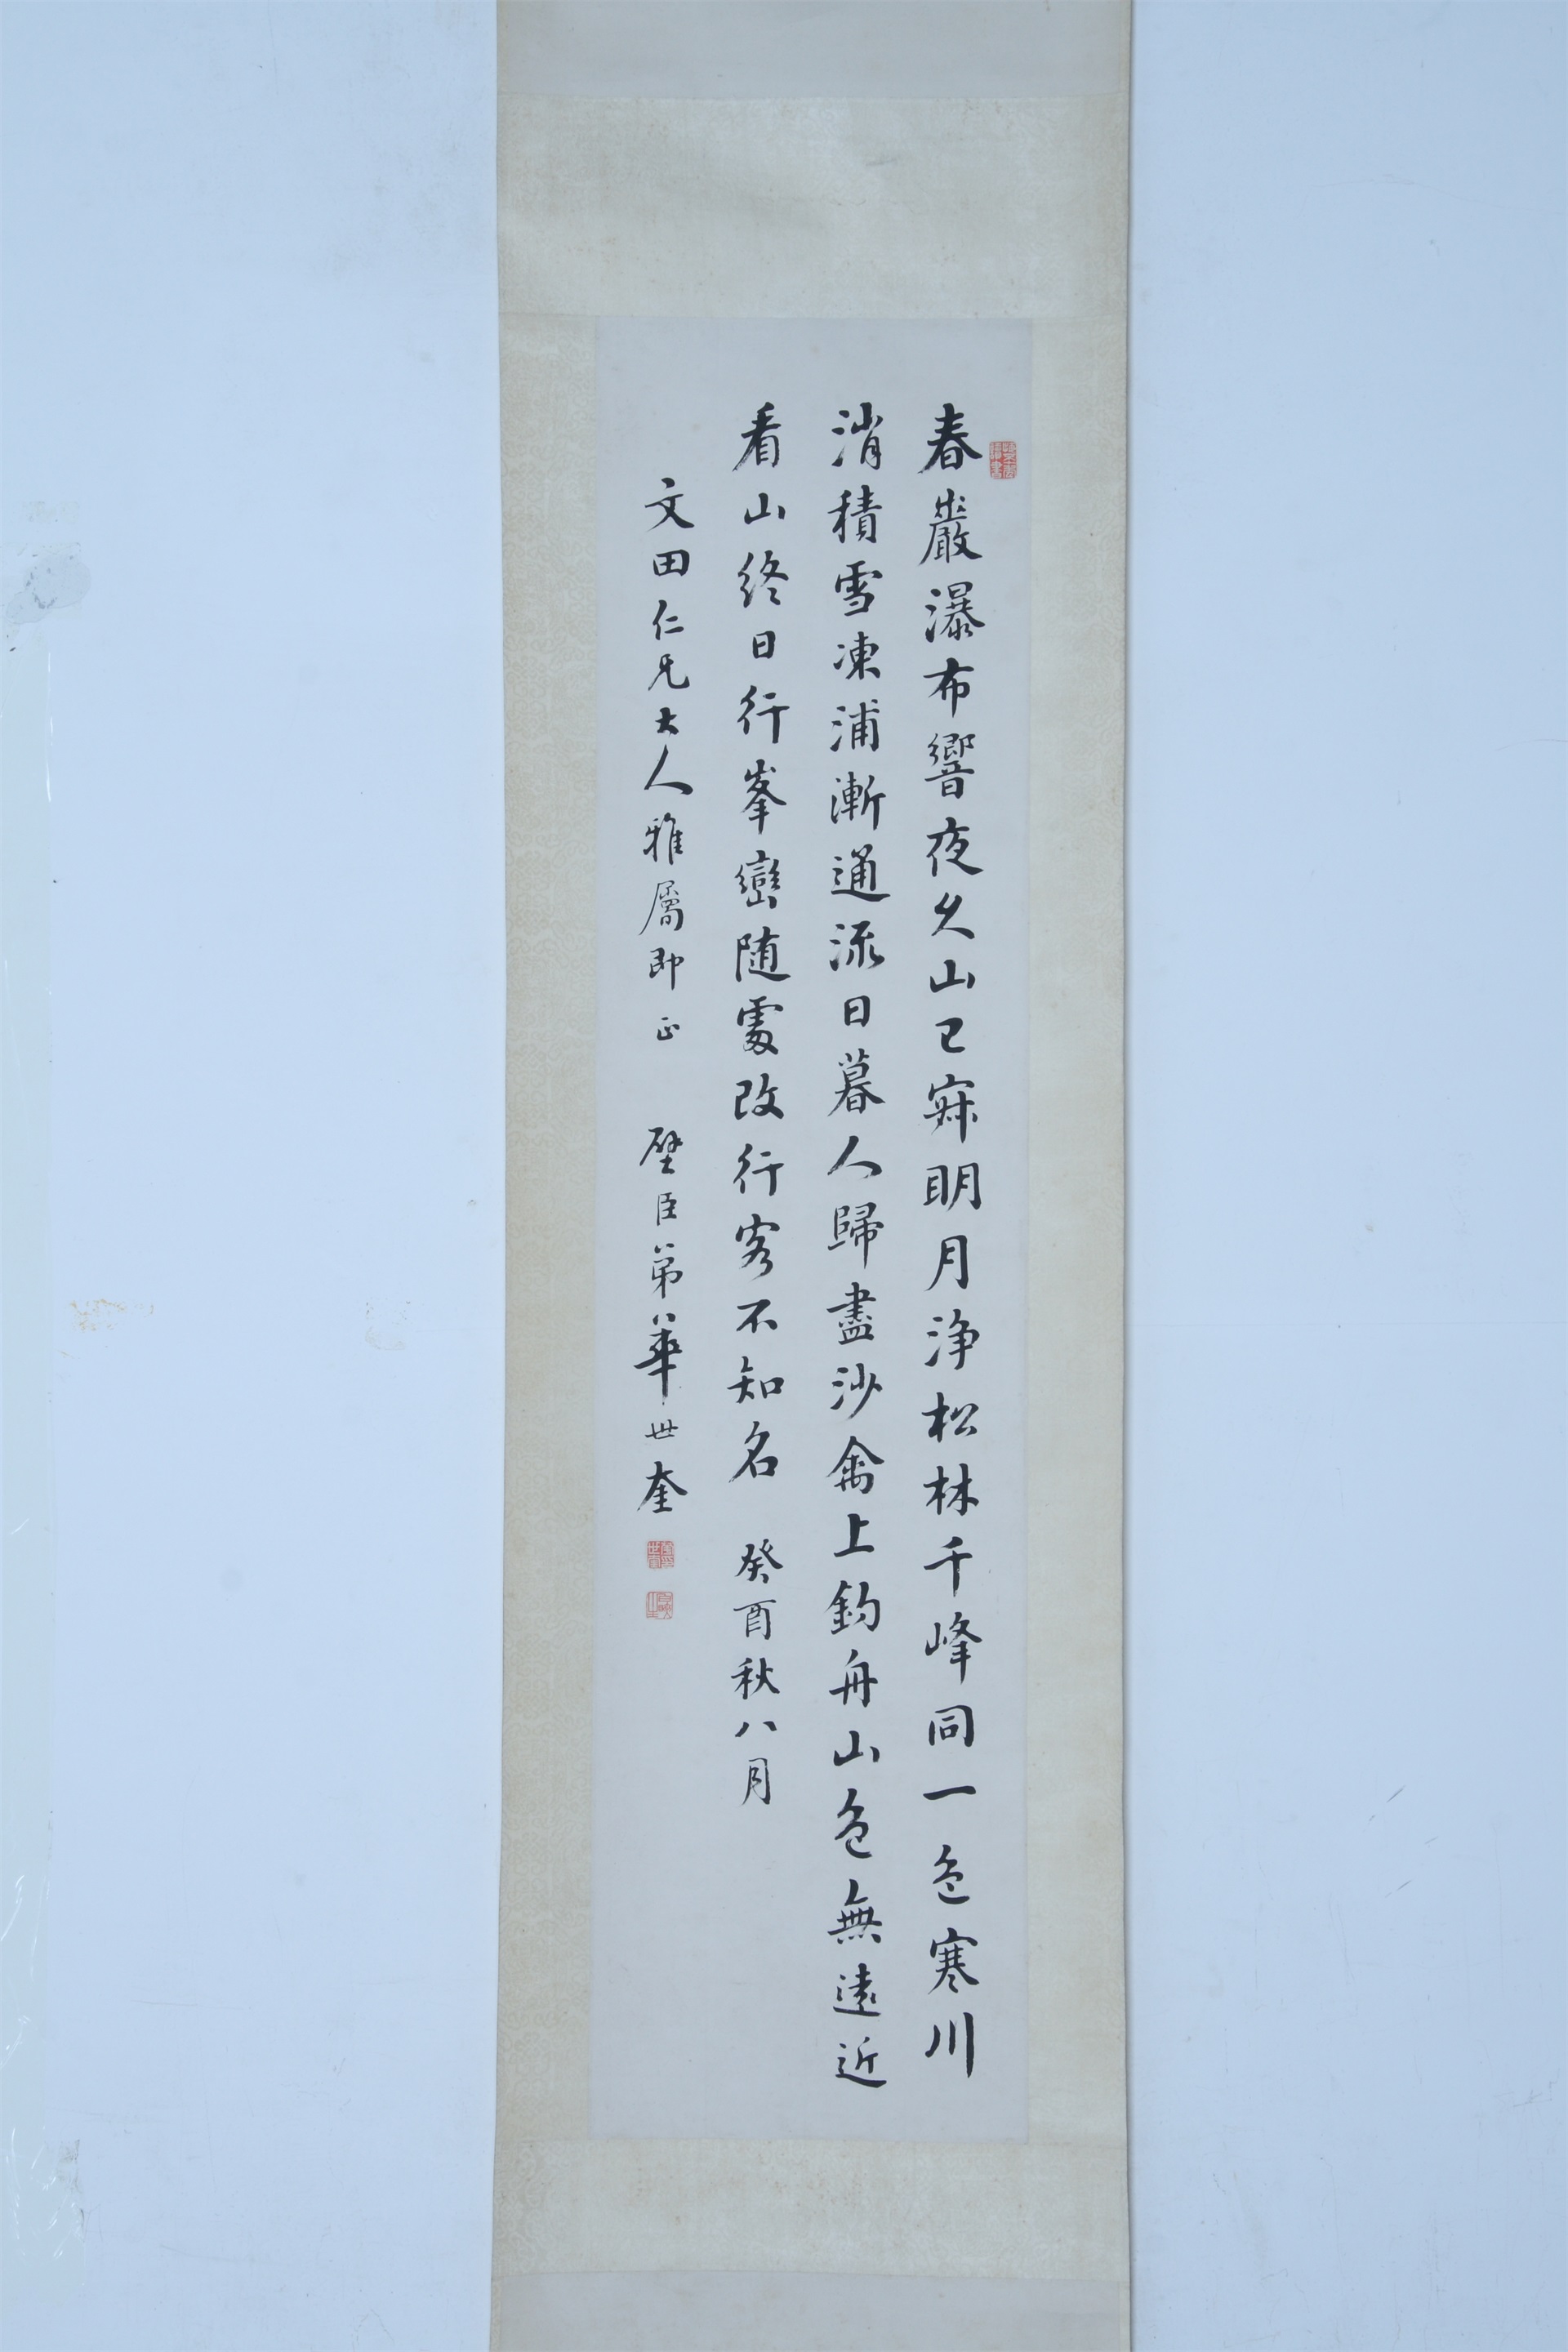 春巖瀑布響夜久山已寂明月淨松林千峰同一色寒川
消積雪凍浦漸通流日暮人歸盡沙禽上釣舟山色無遠近
看山終日行峯巒隨處改行客不知名 癸酉秋八月
文田仁兄大人雅屬即正 壁臣弟華世奎